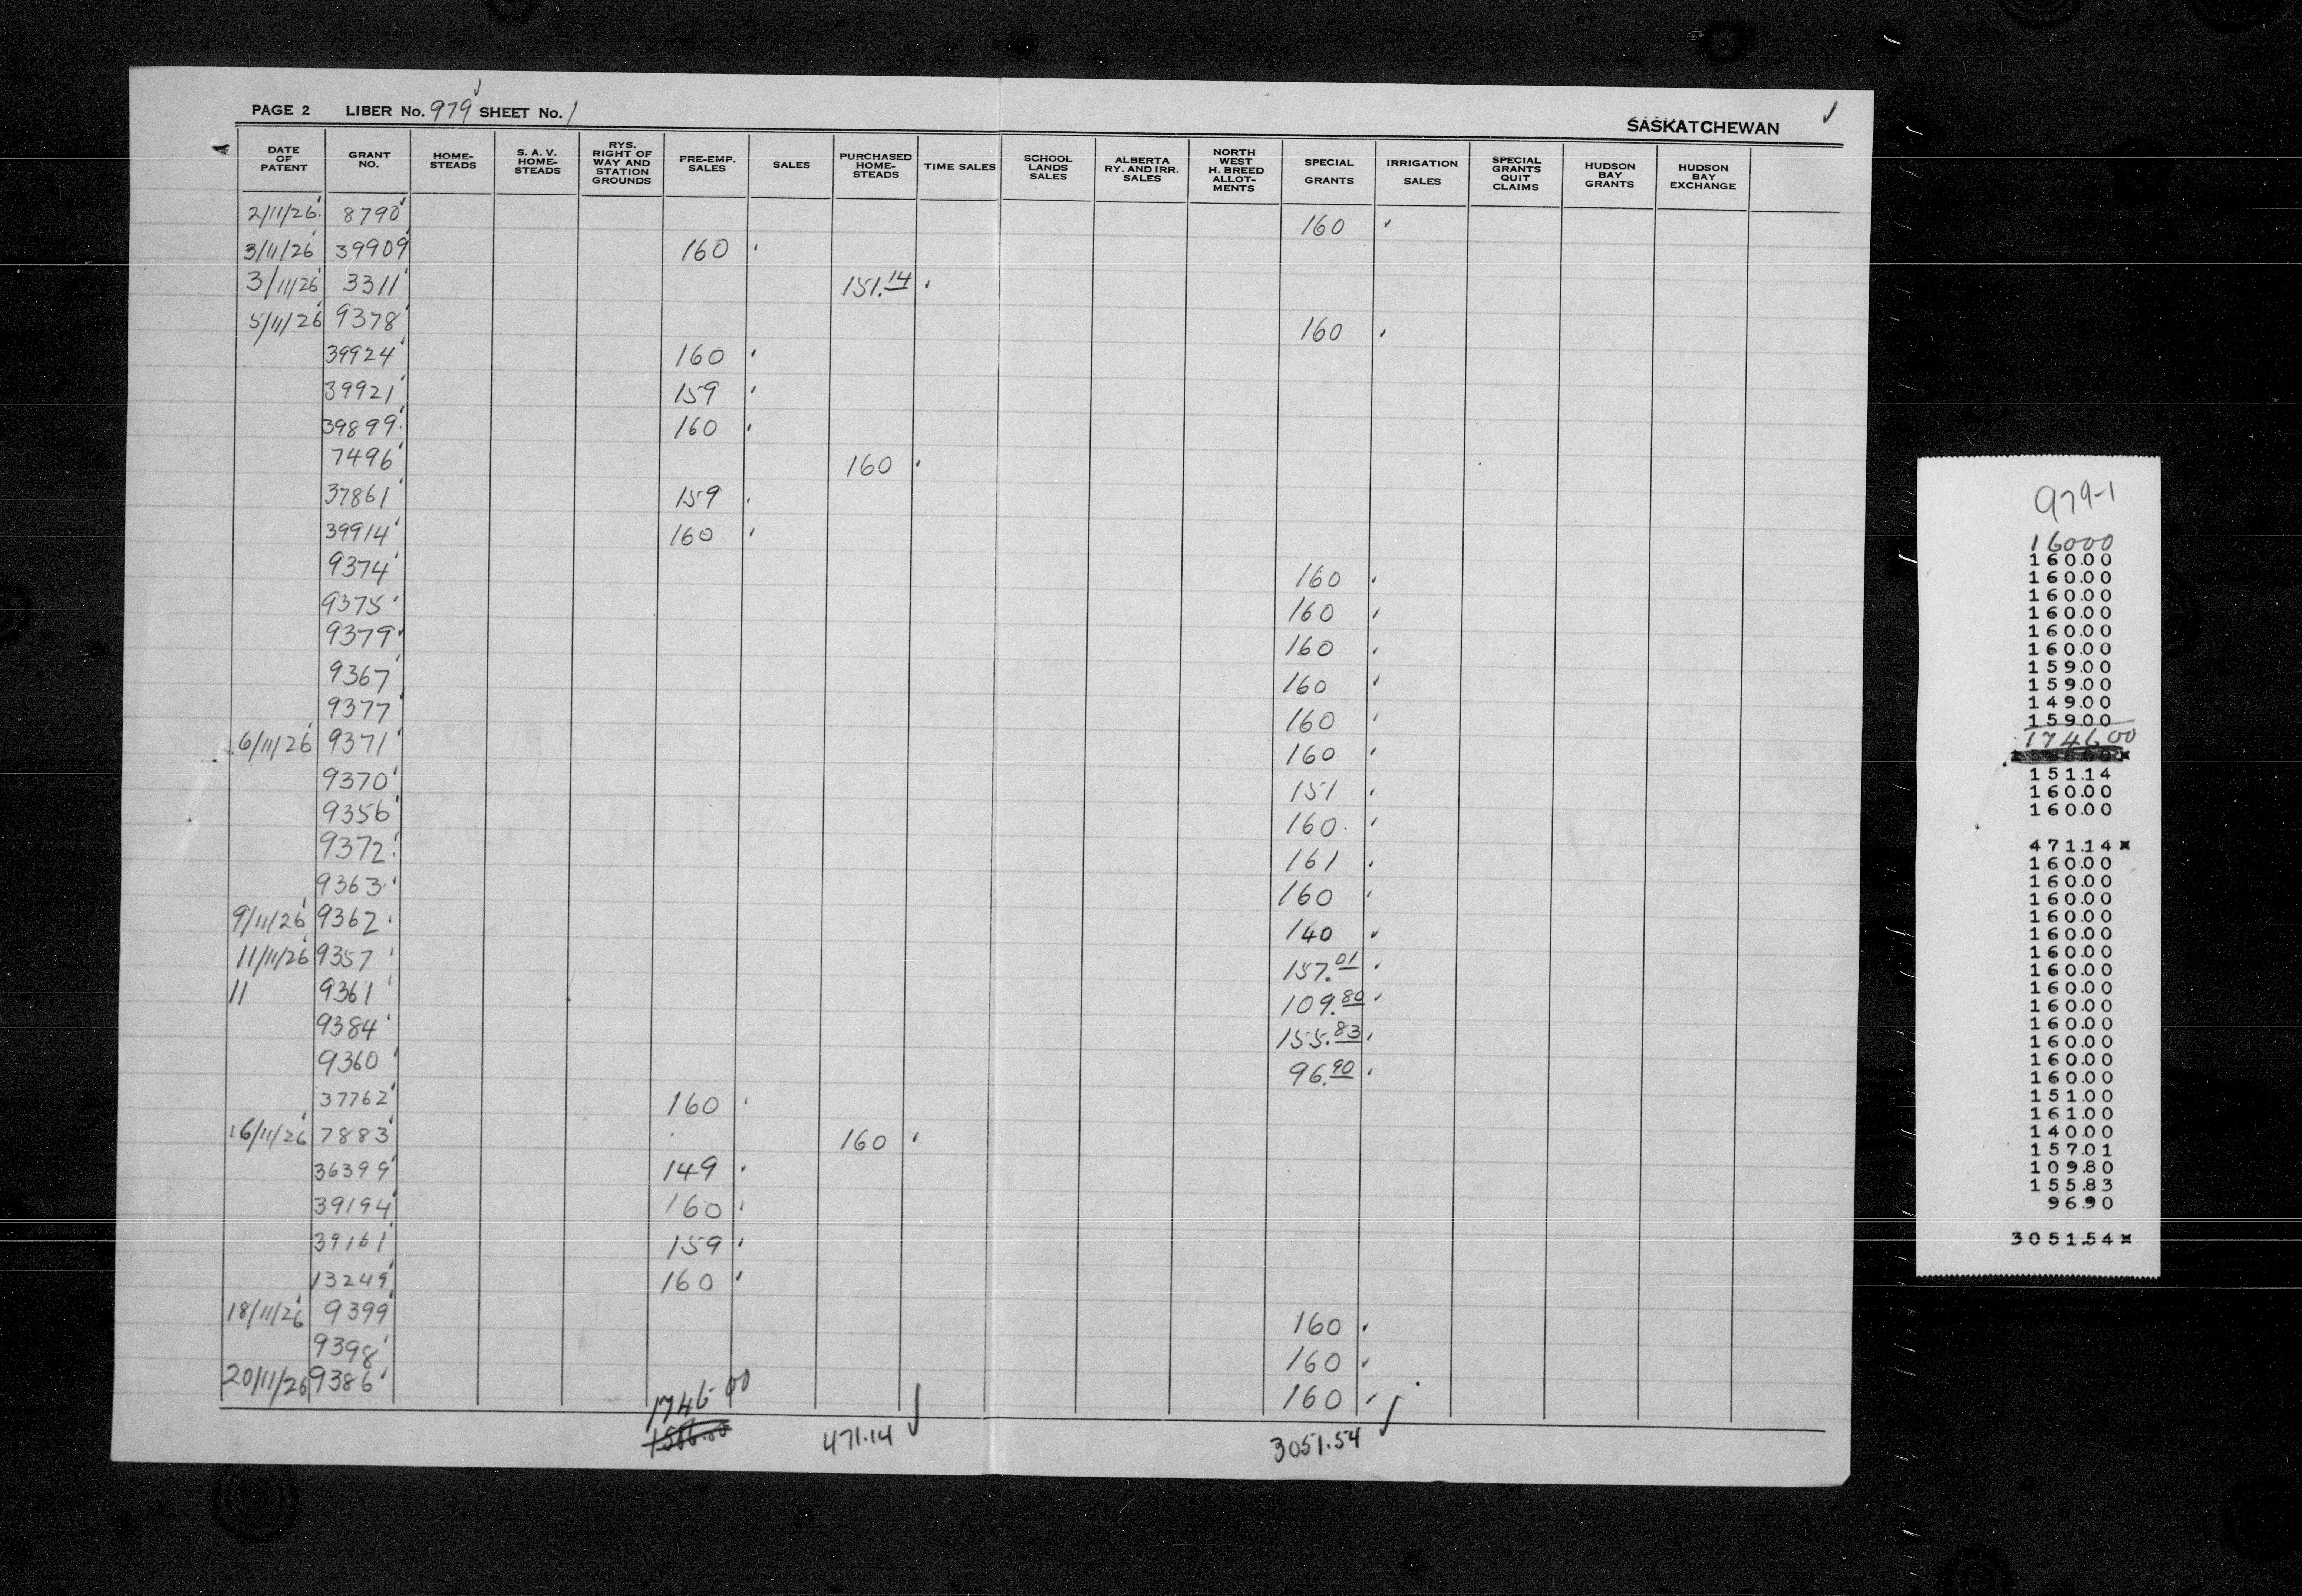 PAGE 2 LIBER No. 979 SHEET No. 1
SASKATCHEWAN
DATE OF PATENT GRANT NO. HOME-STEADS S. A. V. HOME-STEADS RYS. RIGHT OF WAY AND STATION GROUNDS PRE-EMP. SALES SALES PURCHASED HOME-STEADS TIME SALES SCHOOL LANDS SALES ALBERTA RY. AND IRR. SALES NORTH WEST H. BREED ALLOT-MENTS SPECIAL GRANTS IRRIGATION SALES SPECIAL GRANTS QUIT CLAIMS HUDSON BAY GRANTS HUDSON BAY EXCHANGE
2/11/26 8790 160
3/11/26 39909 160
3/11/26 3311 151.14
5/11/26 9378 160
39924 160
39921 159
39899 160
7496 160
37861 159
39914 160
9374 160
9375 160
9379 160
9367 160
9377 160
6/11/26 9371 160
9370 151
9356 160
9372 161
9363 160
9/11/26 9362 140
11/11/26 9357 157.01
11 9361 109.80
9384 155.83
9360 96.90
37762 160
16/11/26 7883 160
36399 149
39194 160
39161 159
13249 160
18/11/26 9399 160
9398 160
20/11/26 9386 160
1746.00
1586.00 471.14 3051.54
979-1
16000
160.00
160.00
160.00
160.00
160.00
160.00
159.00
159.00
149.00
159.00
1746.00
151.14
160.00
160.00
471.14 *
160.00
160.00
160.00
160.00
160.00
160.00
160.00
160.00
160.00
160.00
160.00
160.00
160.00
151.00
161.00
140.00
157.01
109.80
155.83
96.90
3051.54 *